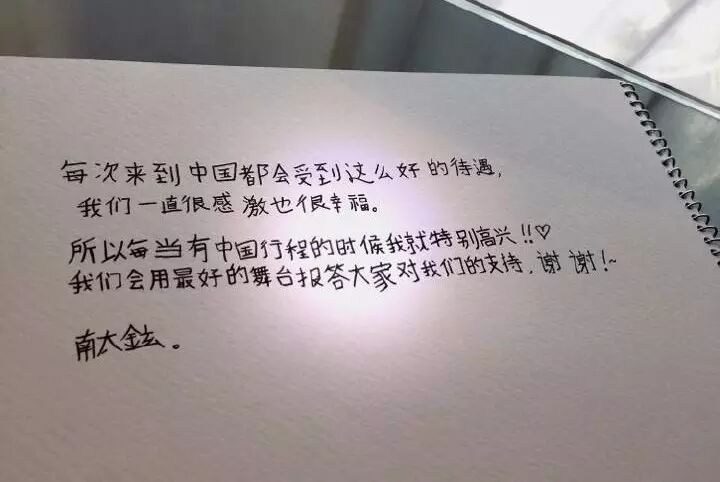 每次来到中国都会受到这么好的待遇,
我们一直很感激也很幸福。
所以每当有中国行程的时候我就特别高兴!!♡
我们会用最好的舞台报答大家对我们的支持,谢谢!~
南太铉。